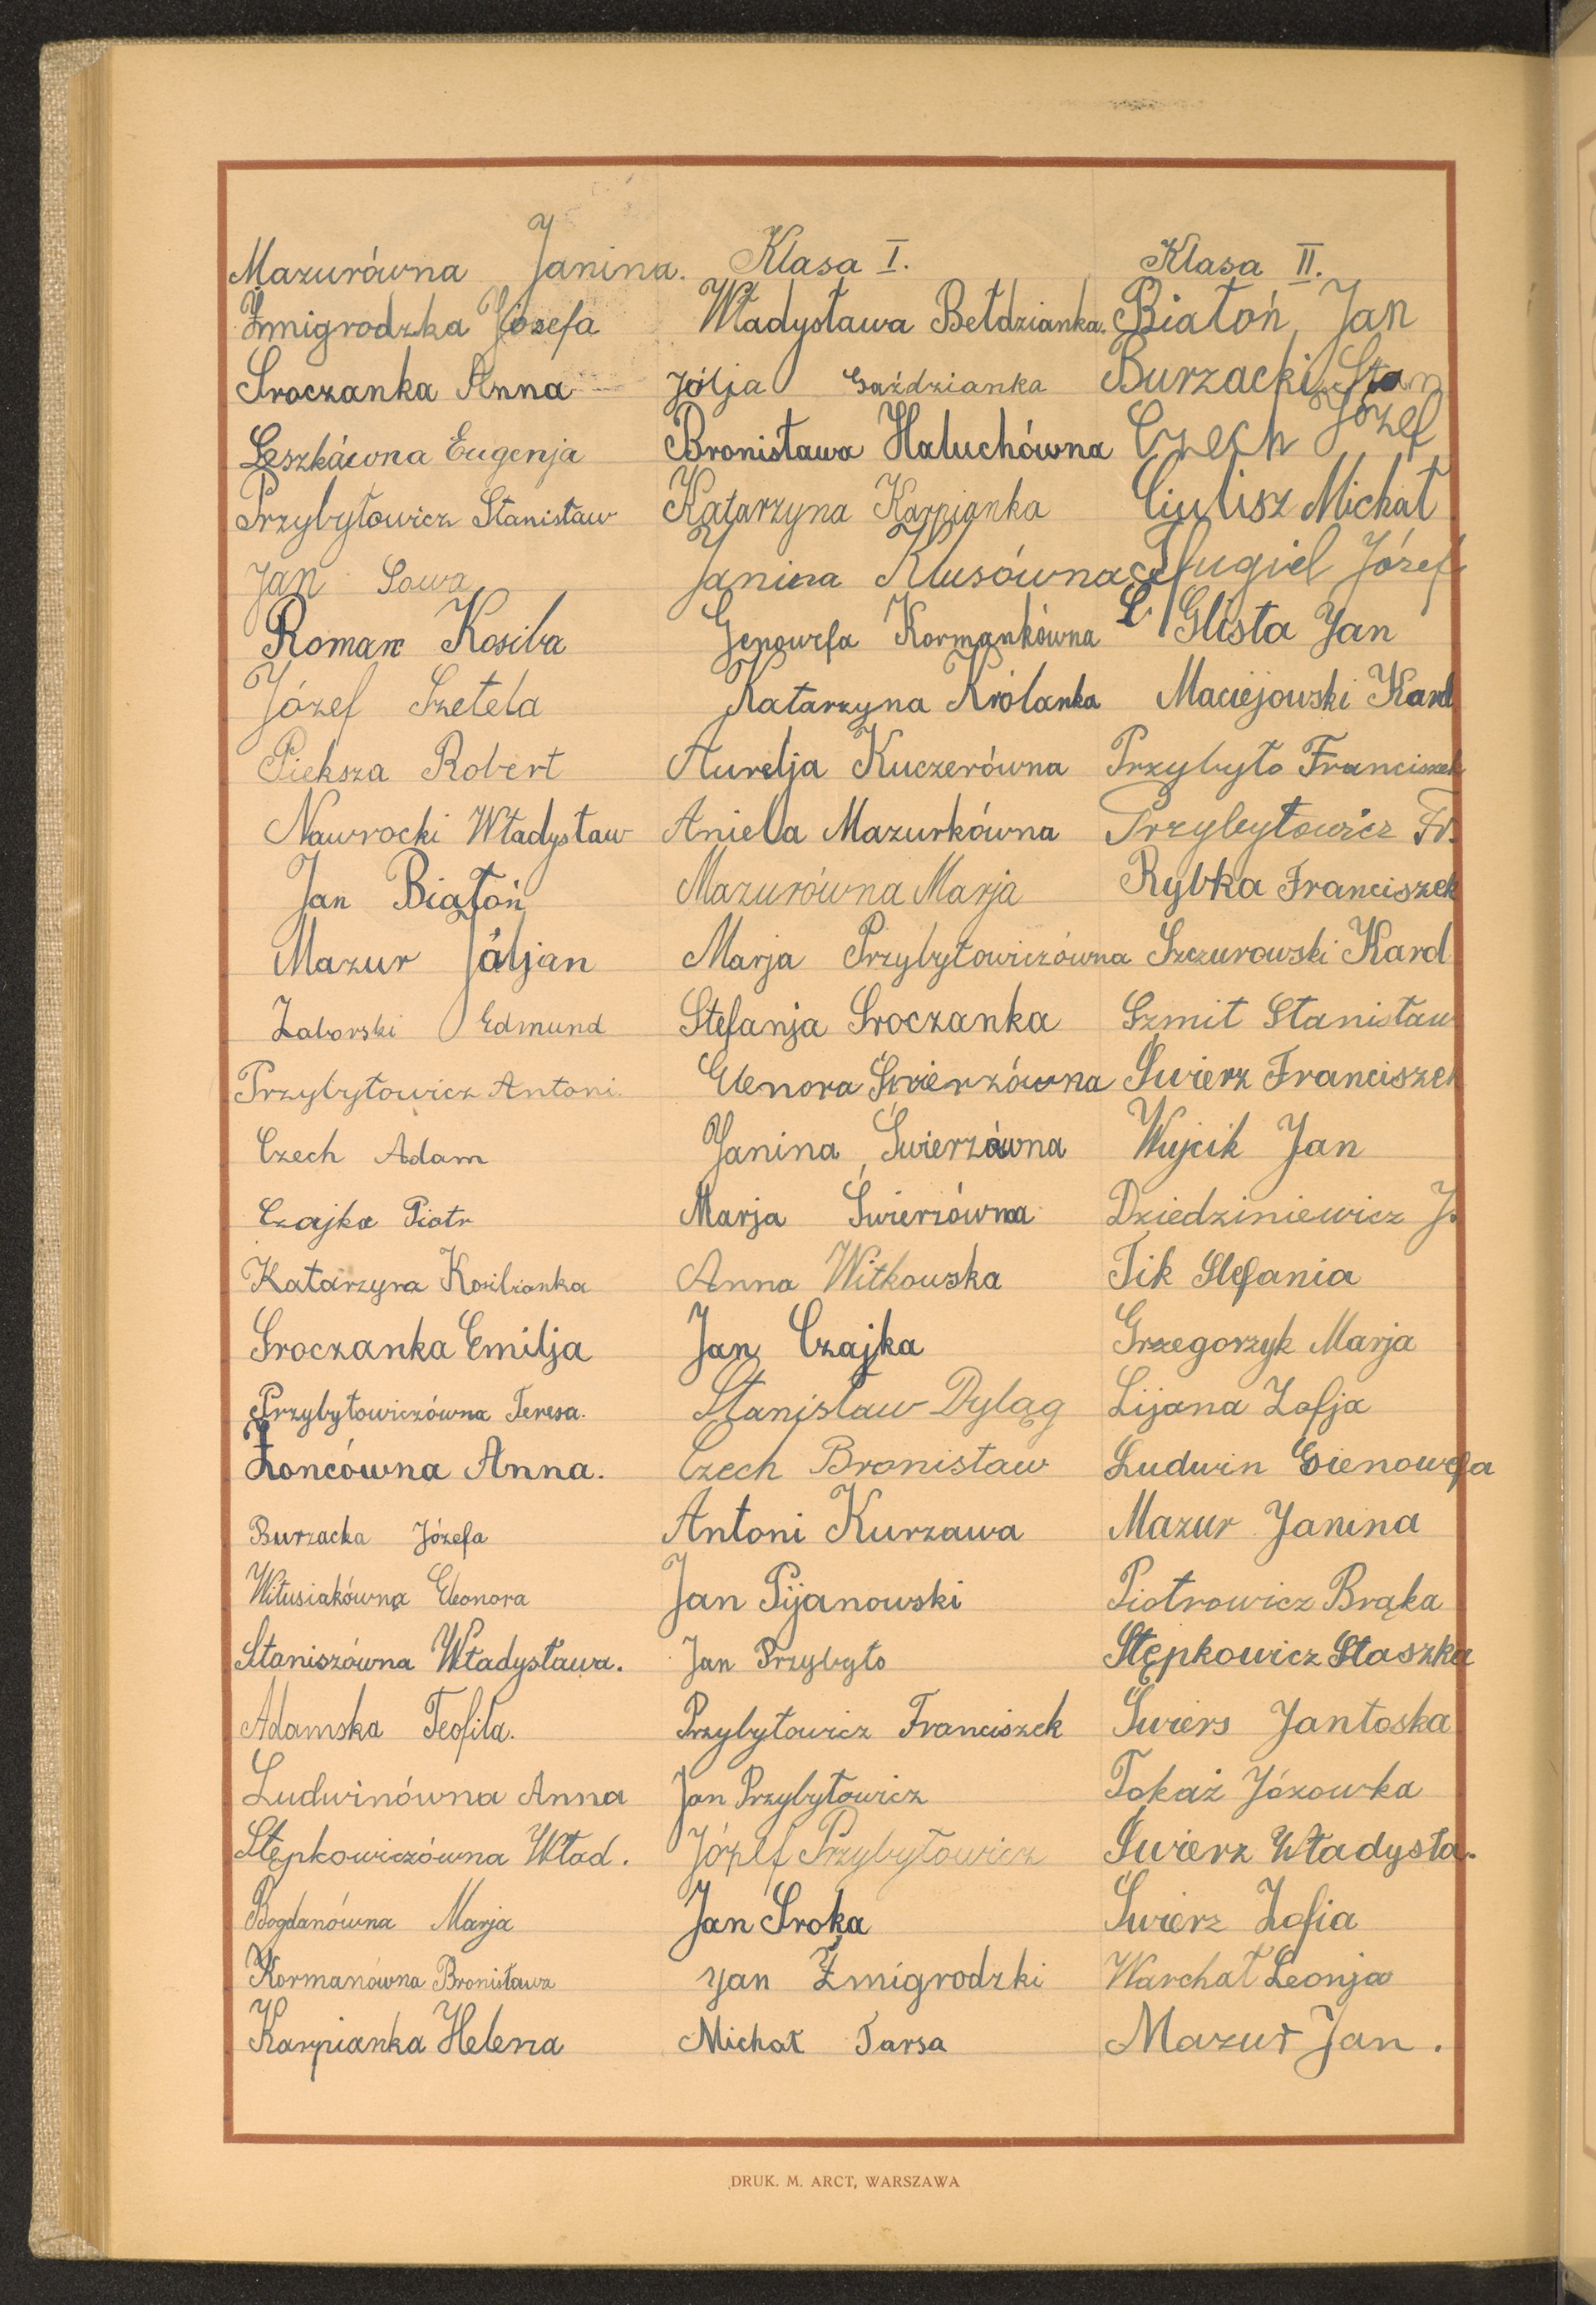 Mazurówna Janina.
Żmigrodzka Józefa
Sroczanka Anna
Leszkówna Eugenja
Przybyłowicz Stanisław
Jan Sowa
Roman Kosiba
Józef Szetela
Pieksza Robert
Nawrocki Władysław
Jan Białoń
Mazur Jóljan
Zaborski Edmund
Przybyłowicz Antoni.
Czech Adam
Czajka Piotr
Katarzyna Kosibianka
Sroczanka Emilja
Przybyłowiczówna Teresa.
Żońcówna Anna.
Burzacka Józefa
Witusiakówna Eleonora
Staniszówna Władysława.
Adamska Teofila.
Ludwinówna Anna
Stępkowiczówna Wład.
Bogdanówna Marja
Kormanówna Bronisława
Karpianka Helena
Klasa I.
Władysława Bełdzianka.
Jólja Gaździanka
Bronisława Haluchówna
Katarzyna Karpianka
Janina Klusówna
Genowefa Kormankówna
Katarzyna Królanka
Aurelja Kuczerówna
Aniela Mazurkówna
Mazurówna Marja
Marja Przybyłowiczówna
Stefanja Sroczanka
Elenora Świerzówna
Janina Świerzówna
Marja Świerzówna
Anna Witkowska
Jan Czajka
Stanisław Dyląg
Czech Bronisław
Antoni Kurzawa
Jan Pijanowski
Jan Przybyło
Przybyłowicz Franciszek
Jan Przybyłowicz
Józef Przybyłowicz
Jan Sroka
Jan Żmigrodzki
Michał Tarsa
Klasa II.
Białoń Jan
Burzacki Stan
Czech Józef
Ciulisz Michał
Józef
Glista Jan
Maciejowski Karol
Przybyło Franciszek
Przybyłowicz Fr.
Rybka Franciszek
Szczurowski Karol
Szmit Stanisław
Świerz Franciszek
Wujcik Jan
Dziedziniewicz J.
Fik Stefania
Grzegorzyk Marja
Lijana Zofja
Ludwin Gienowefa
Mazur Janina
Piotrowicz Brąka
Stępkowicz Staszka
Świers Jantoska
Tokaż Józowka
Świerz Władysła.
Świerz Zofia
Warchał Leonja
Mazur Jan.
DRUK. M. ARCT, WARSZAWA